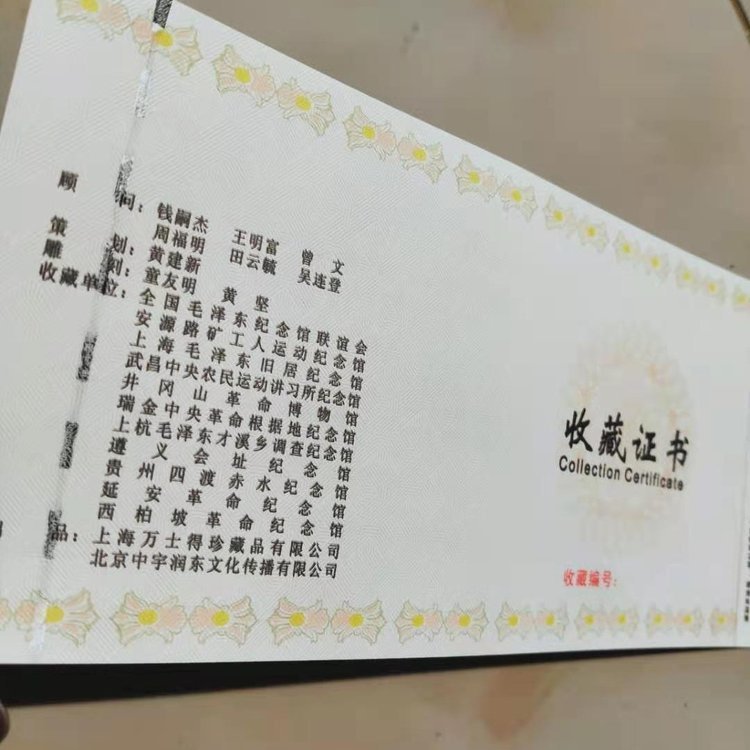 顾问：钱嗣杰 王明富 曾文
周福明 田云毓 吴连登
策划：黄建新
雕刻：童友明 黄坚
收藏单位：全国毛泽东纪念馆联谊会
安源路矿工人运动纪念馆
上海毛泽东旧居纪念馆
武昌中央农民运动讲习所纪念馆
井冈山革命博物馆
瑞金中央革命根据地纪念馆
上杭毛泽东才溪乡调查纪念馆
遵义会址纪念馆
贵州四渡赤水纪念馆
延安革命纪念馆
西柏坡革命纪念馆
品：上海万士得珍藏品有限公司
北京中宇润东文化传播有限公司
收藏证书
Collection Certificate
收藏编号：